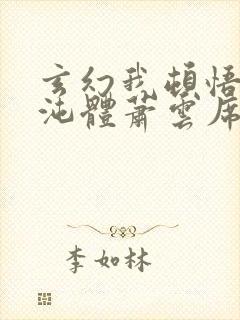 玄幻我頓悟
沌體蕭雲席
李如林